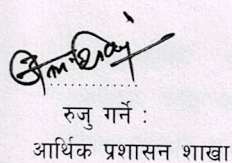 रुजु गर्ने :
आर्थिक प्रशासन शाखा